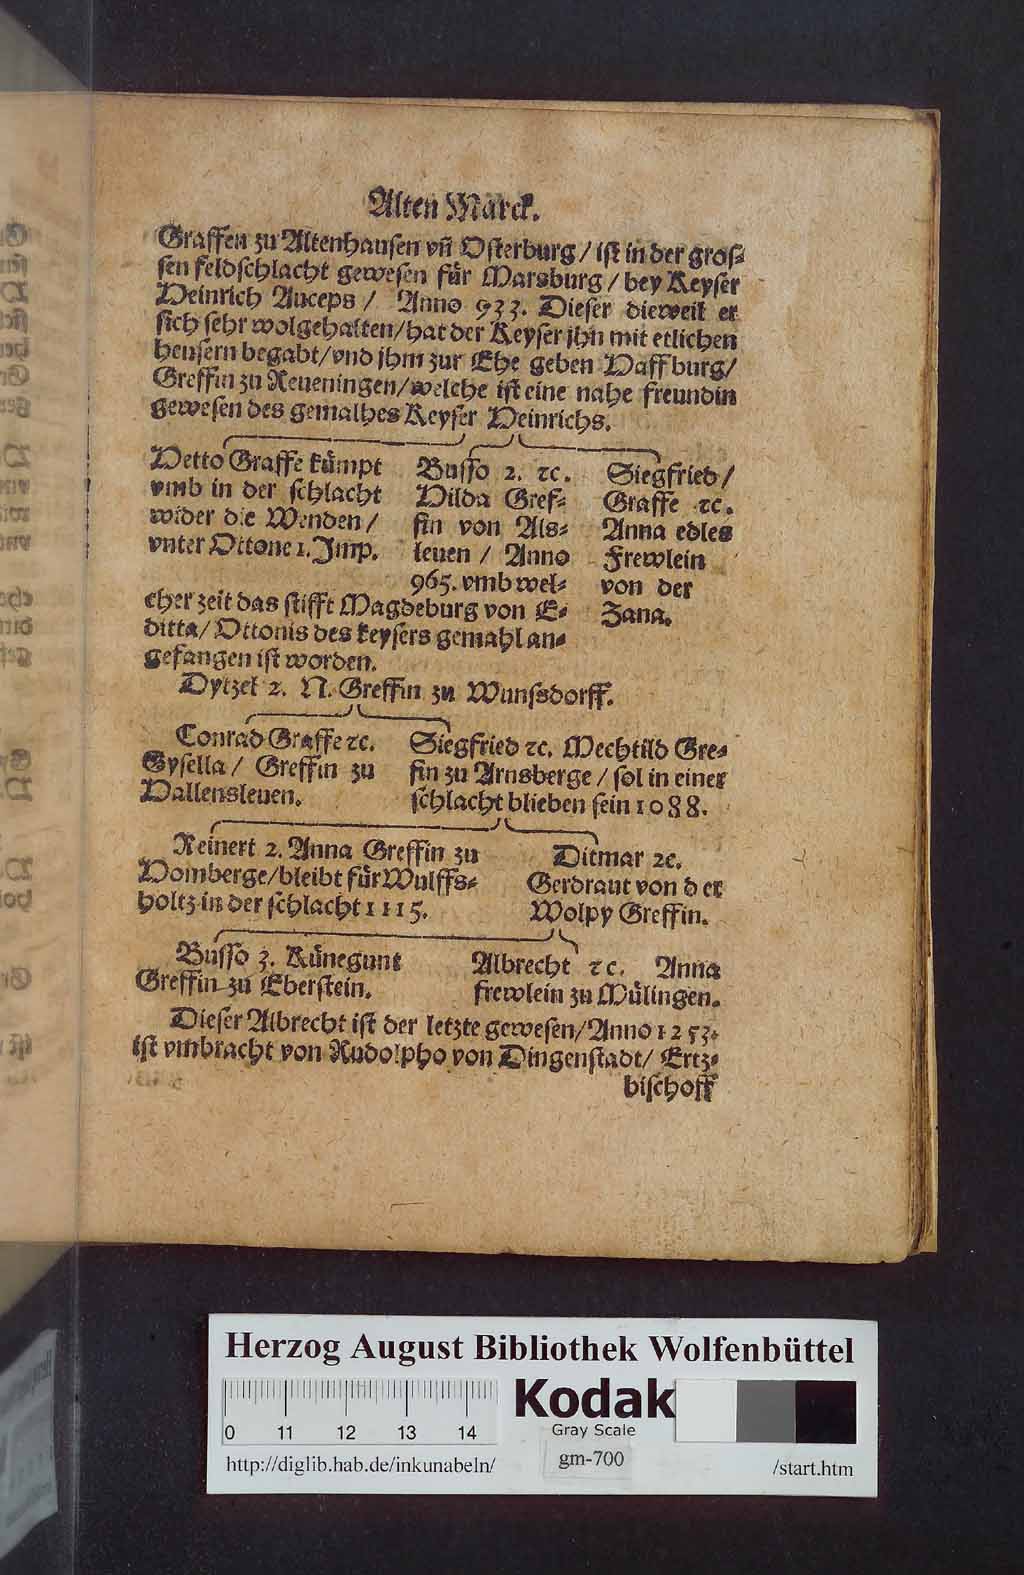 Alten Marck.
Graffen zu Altenhausen vñ Osterburg / ist in der gros⸗
sen feldschlacht gewesen für Marsburg / bey Keyser
Heinrich Auceps / Anno 933. Dieser dieweil er
sich sehr wolgehalten/hat der Keyser jhn mit etlichen
heusern begabt/vnd jhm zur Ehe geben Haffburg/
Greffin zu Reueningen/welche ist eine nahe freundin
gewesen des gemalhes Keyser Heinrichs.
Hetto Graffe kümpt
vmb in der schlacht
wider die Wenden /
vnter Ottone 1. Jmp.
Busso 2. ꝛc.
Hilda Gref⸗
fin von Als⸗
leuen / Anno
965. vmb wel⸗
cher zeit das stifft Magdeburg von E⸗
ditta/ Ottonis des keysers gemahl an⸗
gefangen ist worden.
Siegfried /
Graffe ꝛc.
Anna edles
Frewlein
von der
Zana.
Dytzel 2. N. Greffin zu Wunssdorff.
Conrad Graffe ꝛc.
Gysella / Greffin zu
Hallensleuen.
Siegfried ꝛc. Mechtild Gre⸗
fin zu Arnsberge / sol in einer
schlacht blieben sein 1088.
Reinert 2. Anna Greffin zu
Homberge/bleibt für Wulffs⸗
holtz in der schlacht 1115.
Ditmar 2c.
Gerdraut von der
Wolpy Greffin.
Busso 3. Künegunt
Greffin zu Eberstein.
Albrecht ꝛc. Anna
frewlein zu Mülingen.
Dieser Albrecht ist der letzte gewesen/Anno 1253.
ist vmbracht von Rudolpho von Dingenstadt/ Ertz⸗
bischoff
Herzog August Bibliothek Wolfenbüttel
0 11 12 13 14
Kodak
Gray Scale
http://diglib.hab.de/inkunabeln/
gm-700
/start.htm